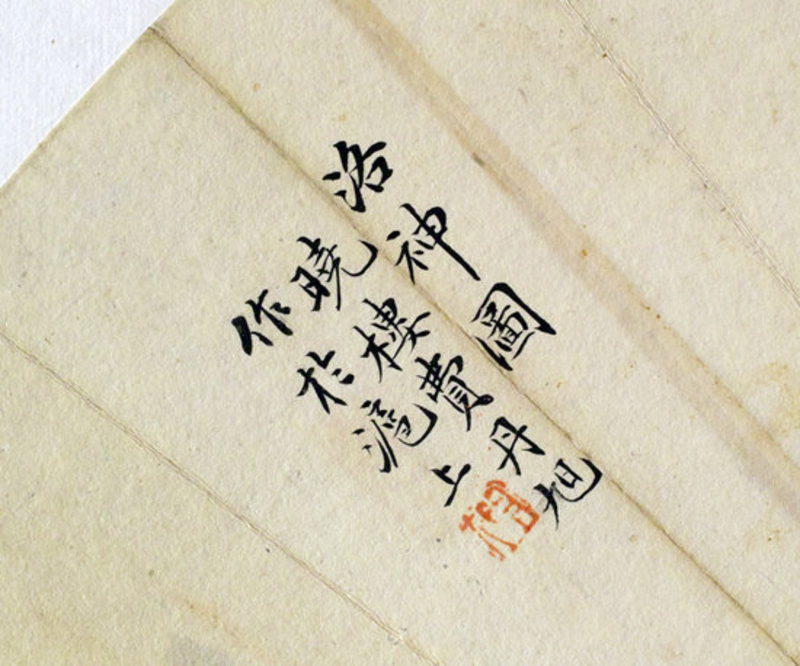 洛神圖
曉樓費丹旭
作於滬上